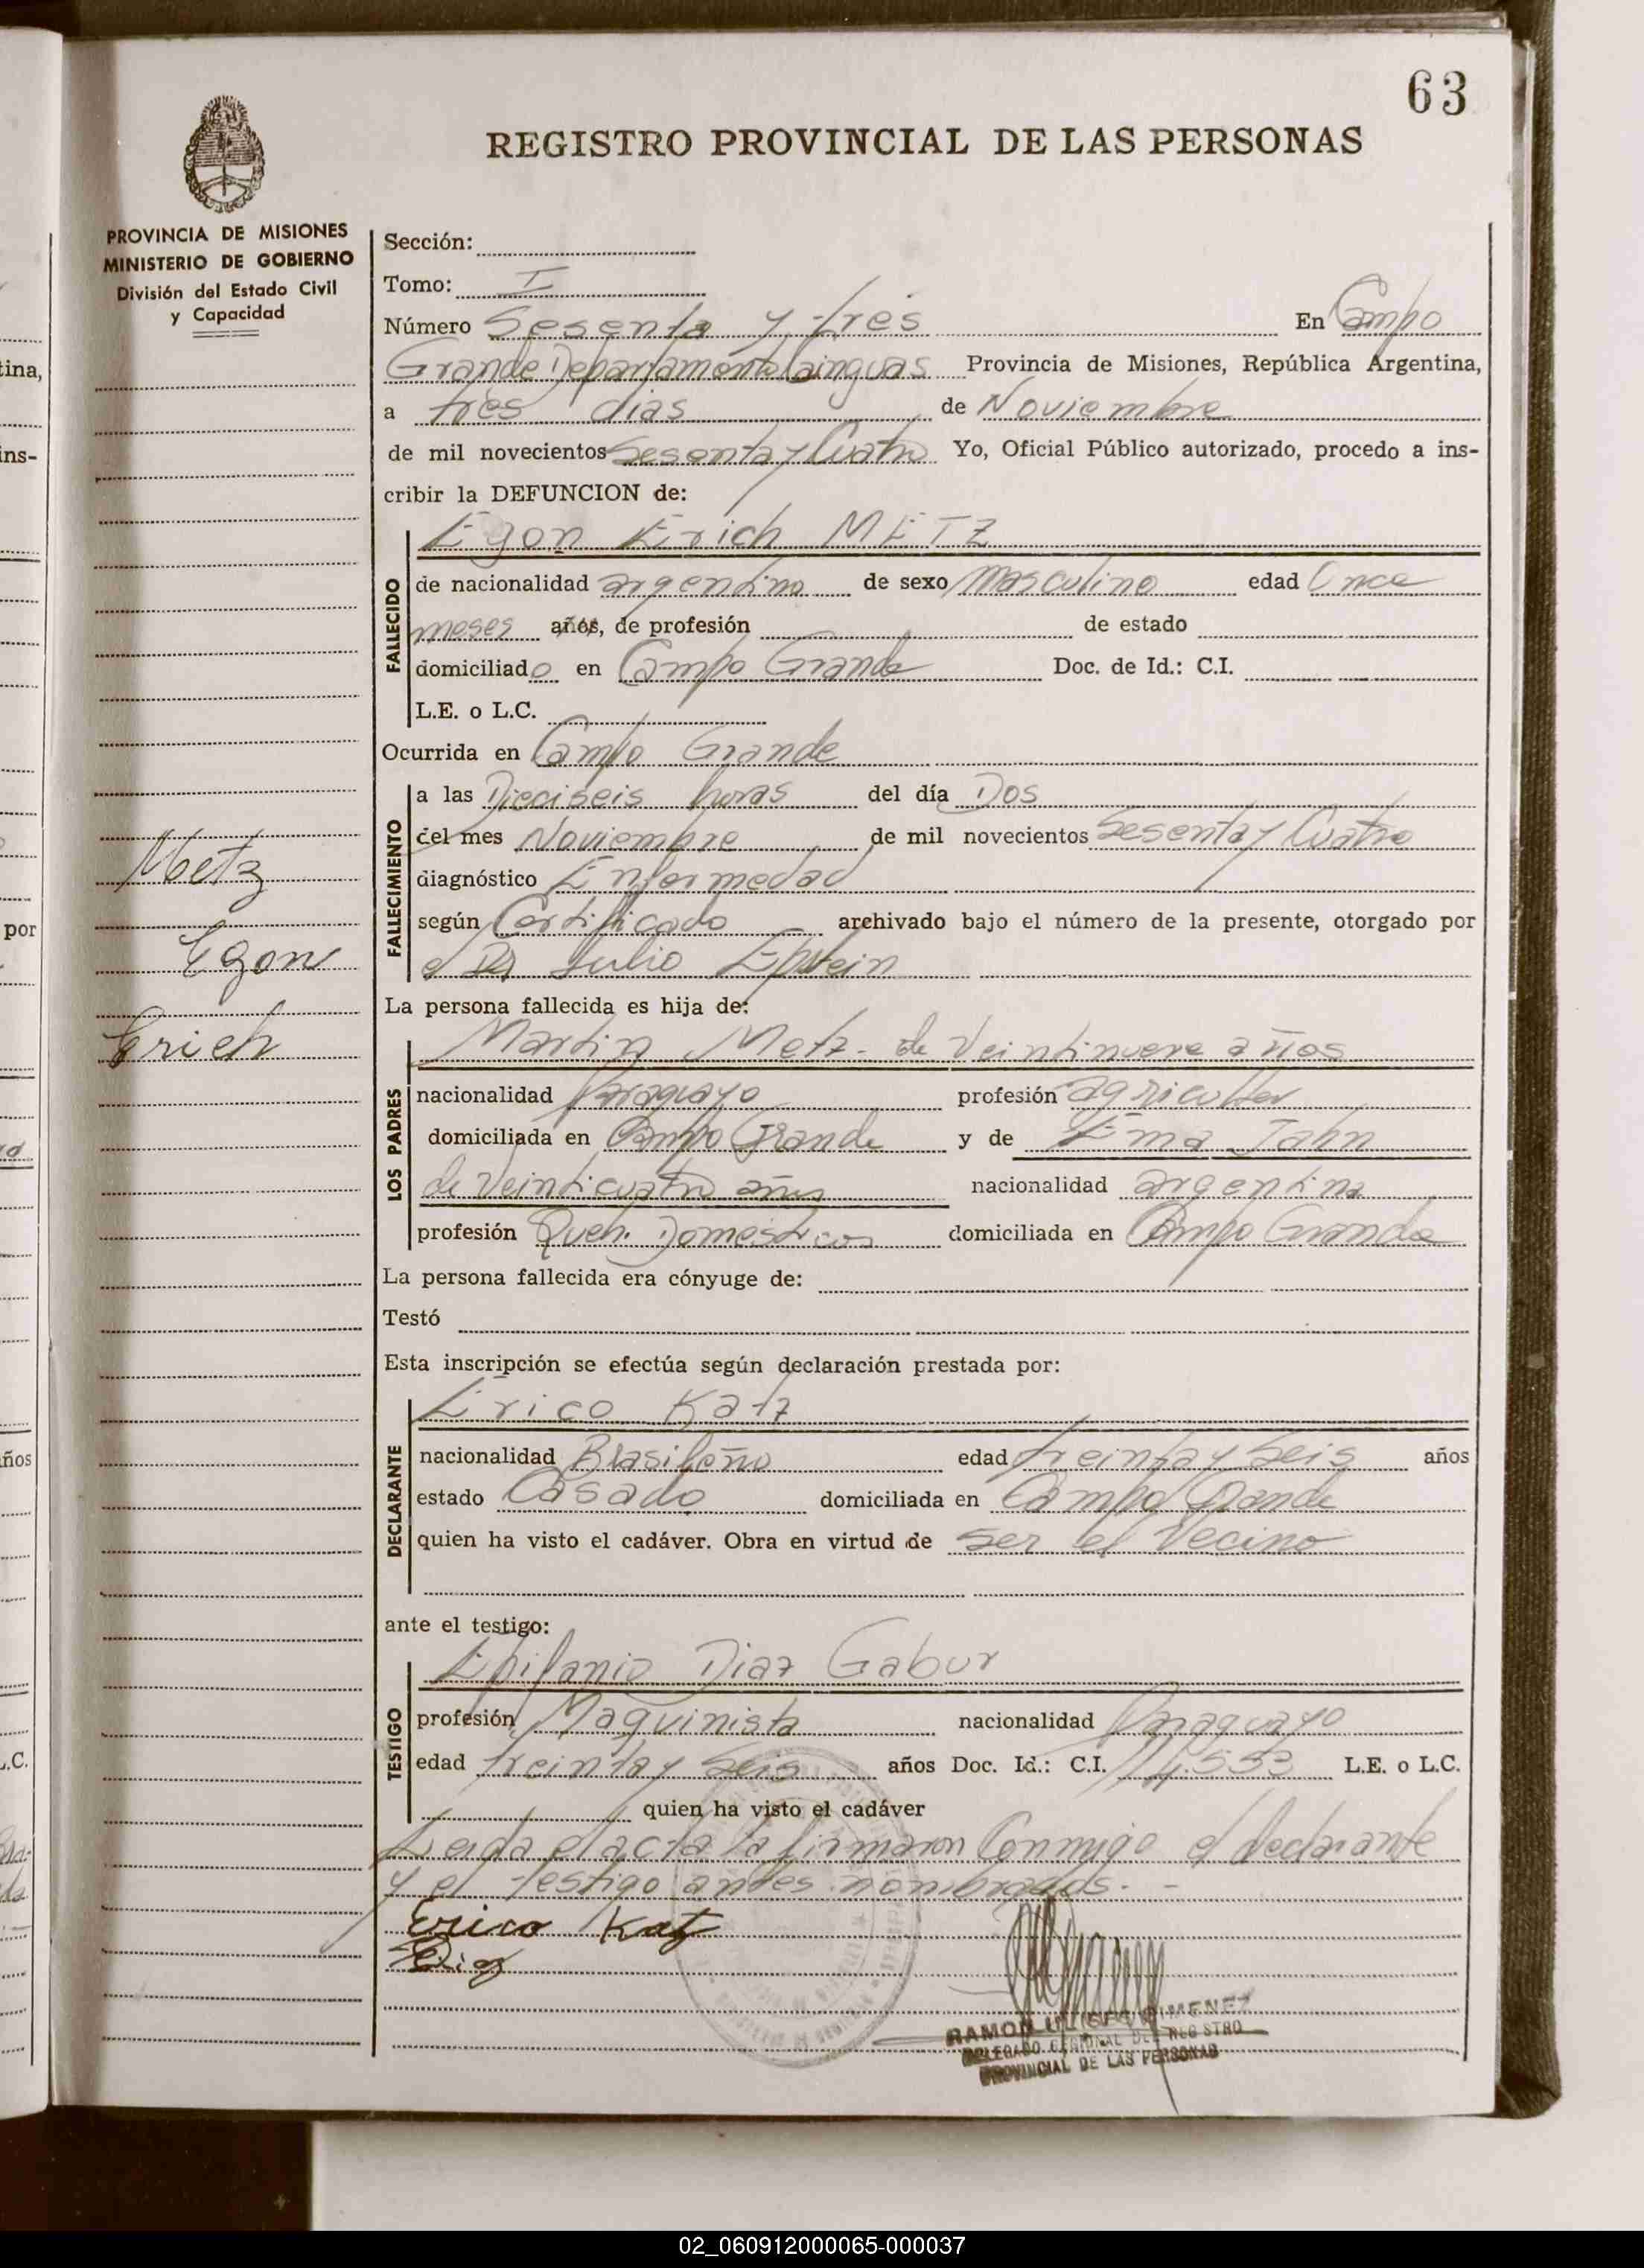 63
REGISTRO PROVINCIAL DE LAS PERSONAS
PROVINCIA DE MISIONES
MINISTERIO DE GOBIERNO
División del Estado Civil
y Capacidad
Metz
Egon
Erich
Sección:
Tomo: I
Número Sesenta y tres En Campo
Grande Departamento Cainguas Provincia de Misiones, República Argentina,
a tres dias de Noviembre
de mil novecientos Sesenta y Cuatro Yo, Oficial Público autorizado, procedo a ins-
cribir la DEFUNCION de:
Egon Erich METZ
FALLECIDO
de nacionalidad argentino de sexo masculino edad Once
meses años, de profesión de estado
domiciliado en Campo Grande Doc. de Id.: C.I.
L.E. o L.C.
Ocurrida en Campo Grande
FALLECIMIENTO
a las Dieciseis horas del día Dos
del mes Noviembre de mil novecientos Sesenta y Cuatro
diagnóstico Enfermedad
según Certificado archivado bajo el número de la presente, otorgado por
el Dr Julio Epstein
La persona fallecida es hija de:
LOS PADRES
Martin Metz - de Veintinueve años
nacionalidad Paraguayo profesión agricultor
domiciliada en Campo Grande y de Ema Jahn
de Veinticuatro años nacionalidad argentina
profesión Queh. Domesticos domiciliada en Campo Grande
La persona fallecida era cónyuge de:
Testó
Esta inscripción se efectúa según declaración prestada por:
DECLARANTE
Erico Katz
nacionalidad Brasileño edad treinta y Seis años
estado Casado domiciliada en Campo Grande
quien ha visto el cadáver. Obra en virtud de ser el Vecino
ante el testigo:
TESTIGO
Epifanio Diaz Gabur
profesión Maquinista nacionalidad Paraguayo
edad treinta y Seis años Doc. Id.: C.I. 14.553 L.E. o L.C.
quien ha visto el cadáver
Leida el acta la firmaron Conmigo el declarante
y el testigo antes nombrados. -
Erico Katz
Diaz
RAMON GIMENEZ
DELEGADO DEL REGISTRO
PROVINCIAL DE LAS PERSONAS
02_060912000065-000037